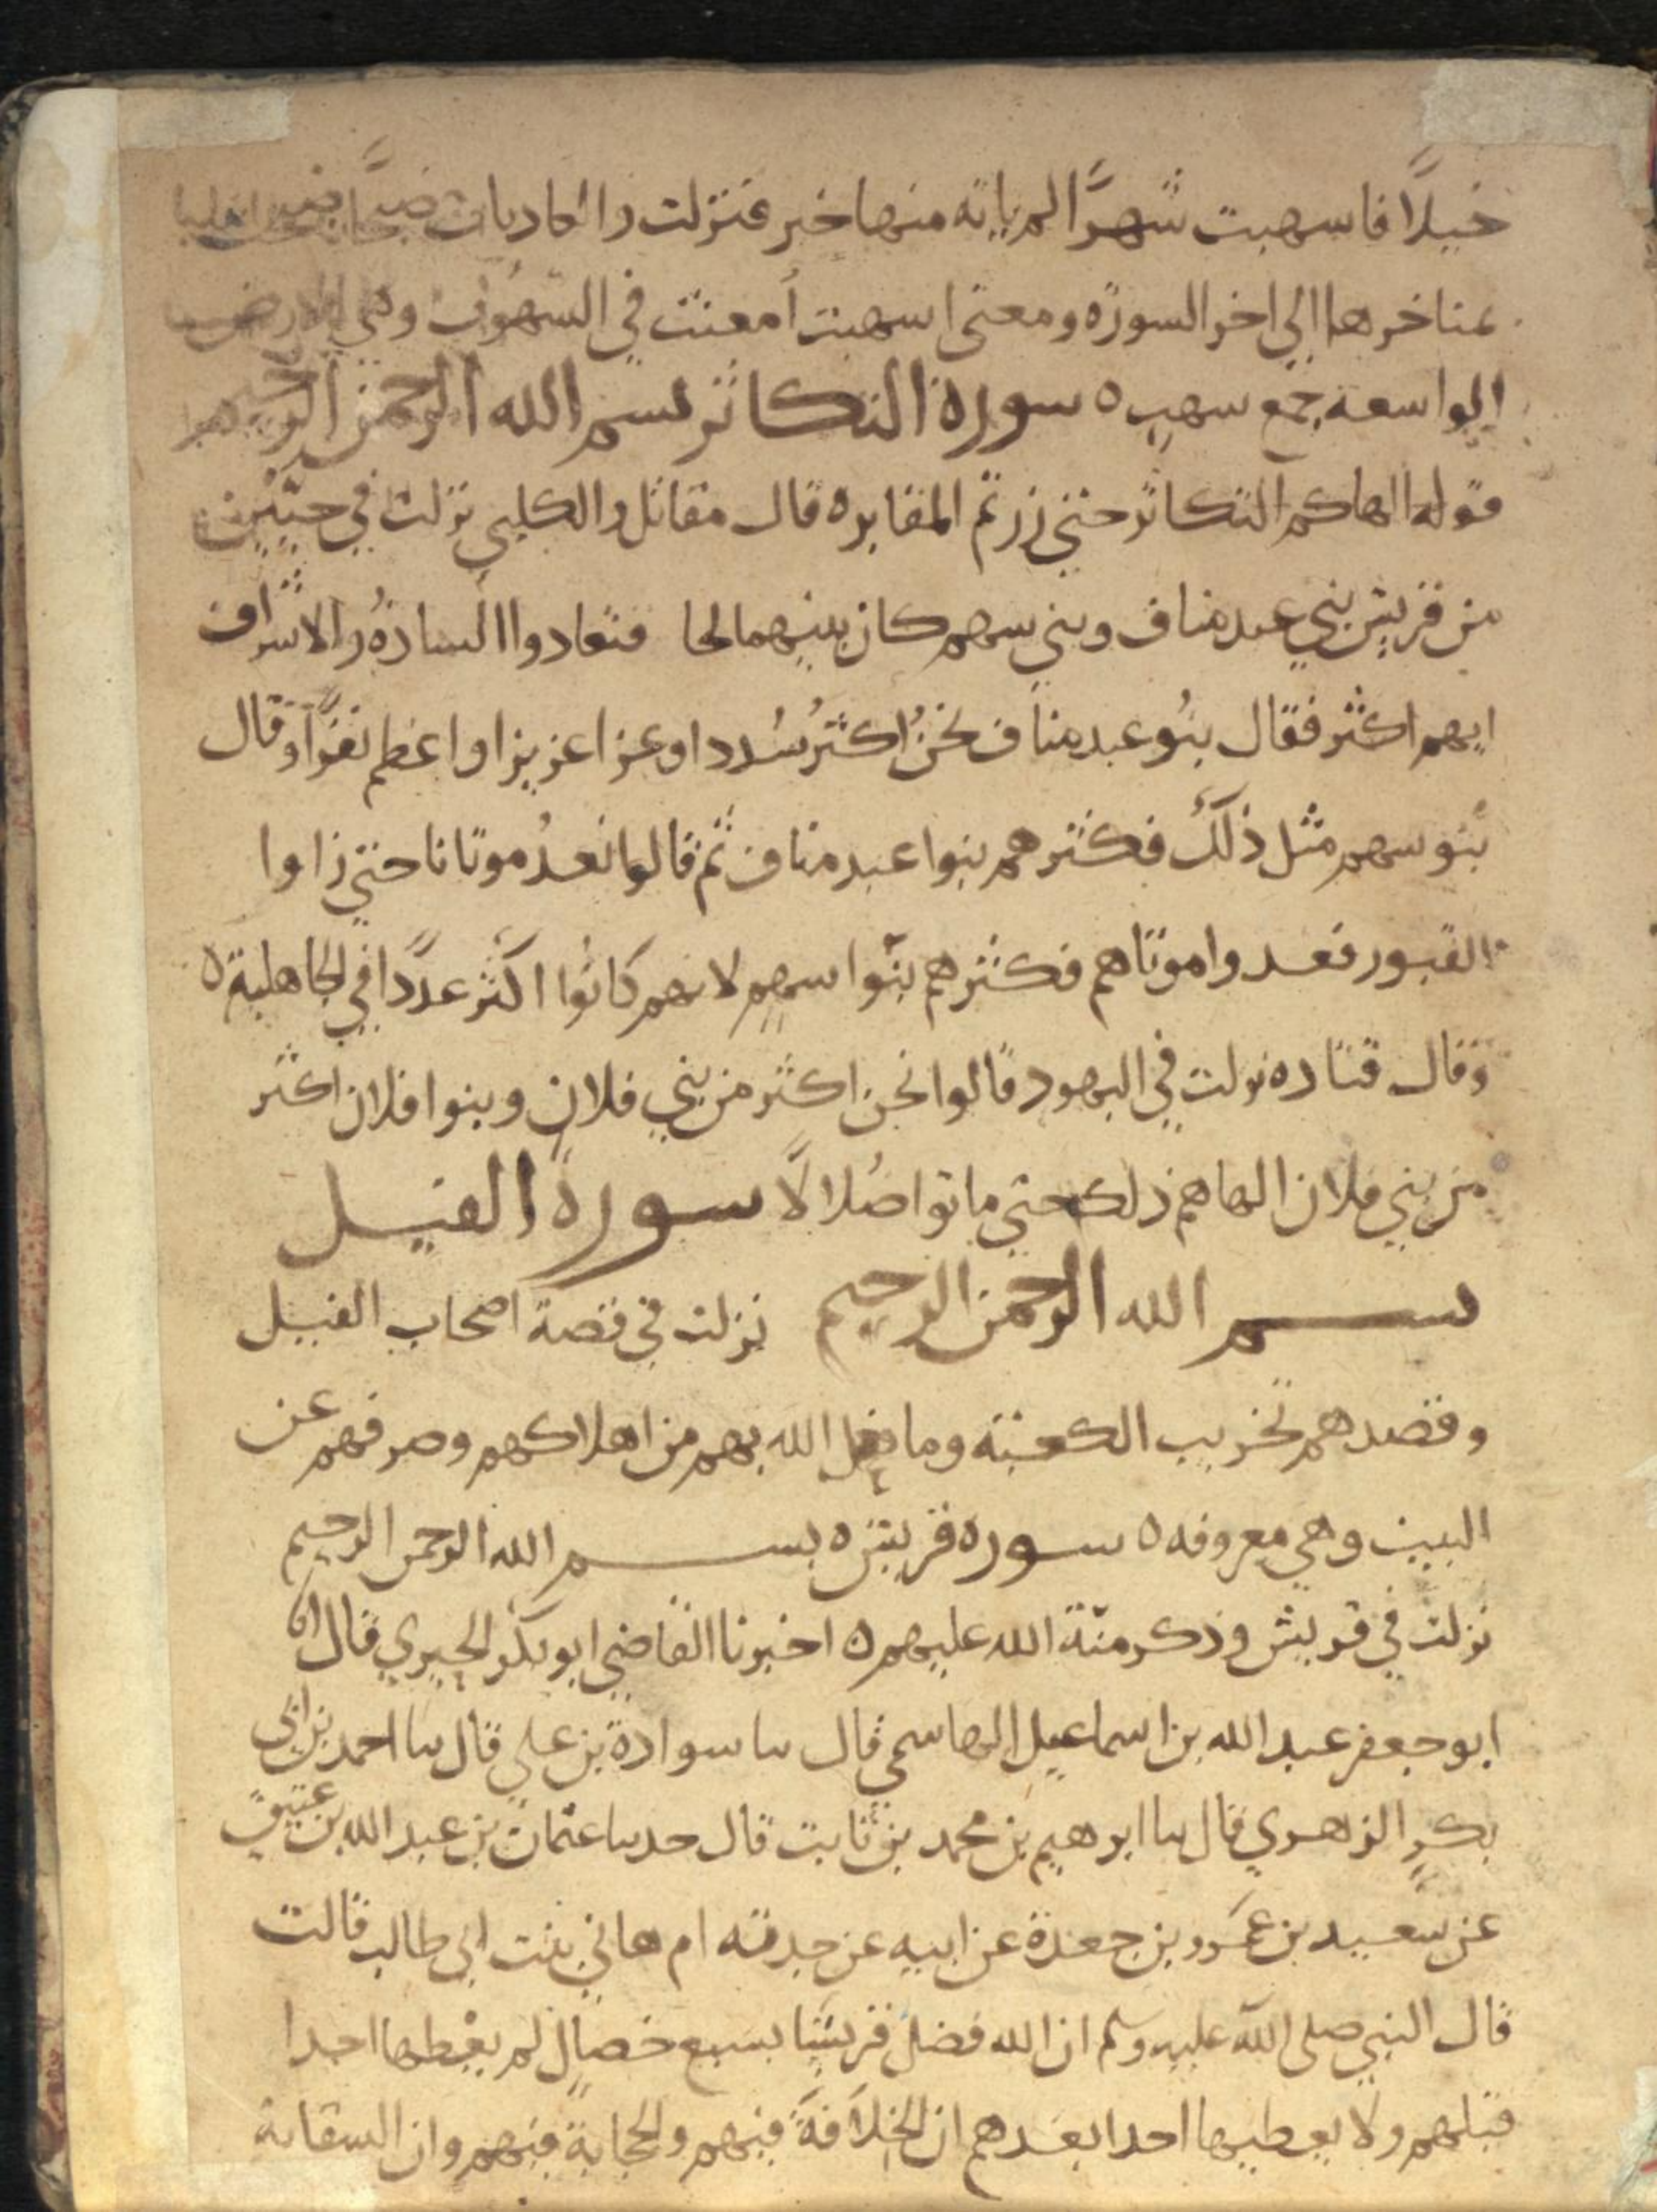 خيلًا فاسهبت شهرًا لم ياته منها خبر فنزلت والعاديات ضبحًا ضبحت
بمناخرها الي اخر السورة ومعنى اسهبت أمعنت في السهُوب وهي الارض
الواسعة جمع سهب ٥ سورة التكاثر بسم الله الرحمن الرحيم
قوله الهاكم التكاثر حتي زرتم المقابر ٥ قال مقاتل والكلبي نزلت في حيّين
من قريش بني عبد مناف وبني سهم كان بينهما لحا فتعادوا السادةُ والاشراف
ايهم اكثر فقال بنُو عبد مناف نحنُ اكثرُ سُددا وعزا عزيزا واعظم نفرًا وقال
بنو سهم مثل ذلكَ فكثرهم بنوا عبد مناف ثم قالوا نعدُ موتانا حتي زاوا
القبور فعدوا موتاهم فكثرهم بنوا سهم لانهم كانوا اكثر عددًا في الجاهلية ٥
وقال قتاده نزلت في اليهود قالوا نحن اكثر من بني فلان وبنوا فلان اكثر
من بني فلان الهاهم ذلك حتي ماتوا ضُلالًا سورة الفيل
بسم الله الرحمن الرحيم نزلت في قصة اصحاب الفيل
وقصدهم تخريب الكعبة وما فعل الله بهم من اهلاكهم وصرفهم عن
البيت وهي معروفه ٥ سورة قريش ٥ بسم الله الرحمن الرحيم
نزلت في قريش وذكر منّة الله عليهم ٥ اخبرنا القاضي ابو بكر الحيري قال انا
ابو جعفر عبد الله بن اسماعيل الهاسمي قال سا سوادة بن علي قال سا احمد بن ابي
بكرٍ الزهري قال سا ابرهيم بن محمد بن ثابت قال حدسا عثمان بن عبد الله بن عتيق
عن سعيد بن عمرو بن جعدة عن ابيه عن جدته ام هاني بنت ابي طالب قالت
قال النبي صلى الله عليه وسلم ان الله فضل قريشا بسبع خصالٍ لم يعْطها احدا
قبلهم ولا يعطيها احدا بعدهم ان الخلافةَ فيهم والحجابة فيهم وان السقاية